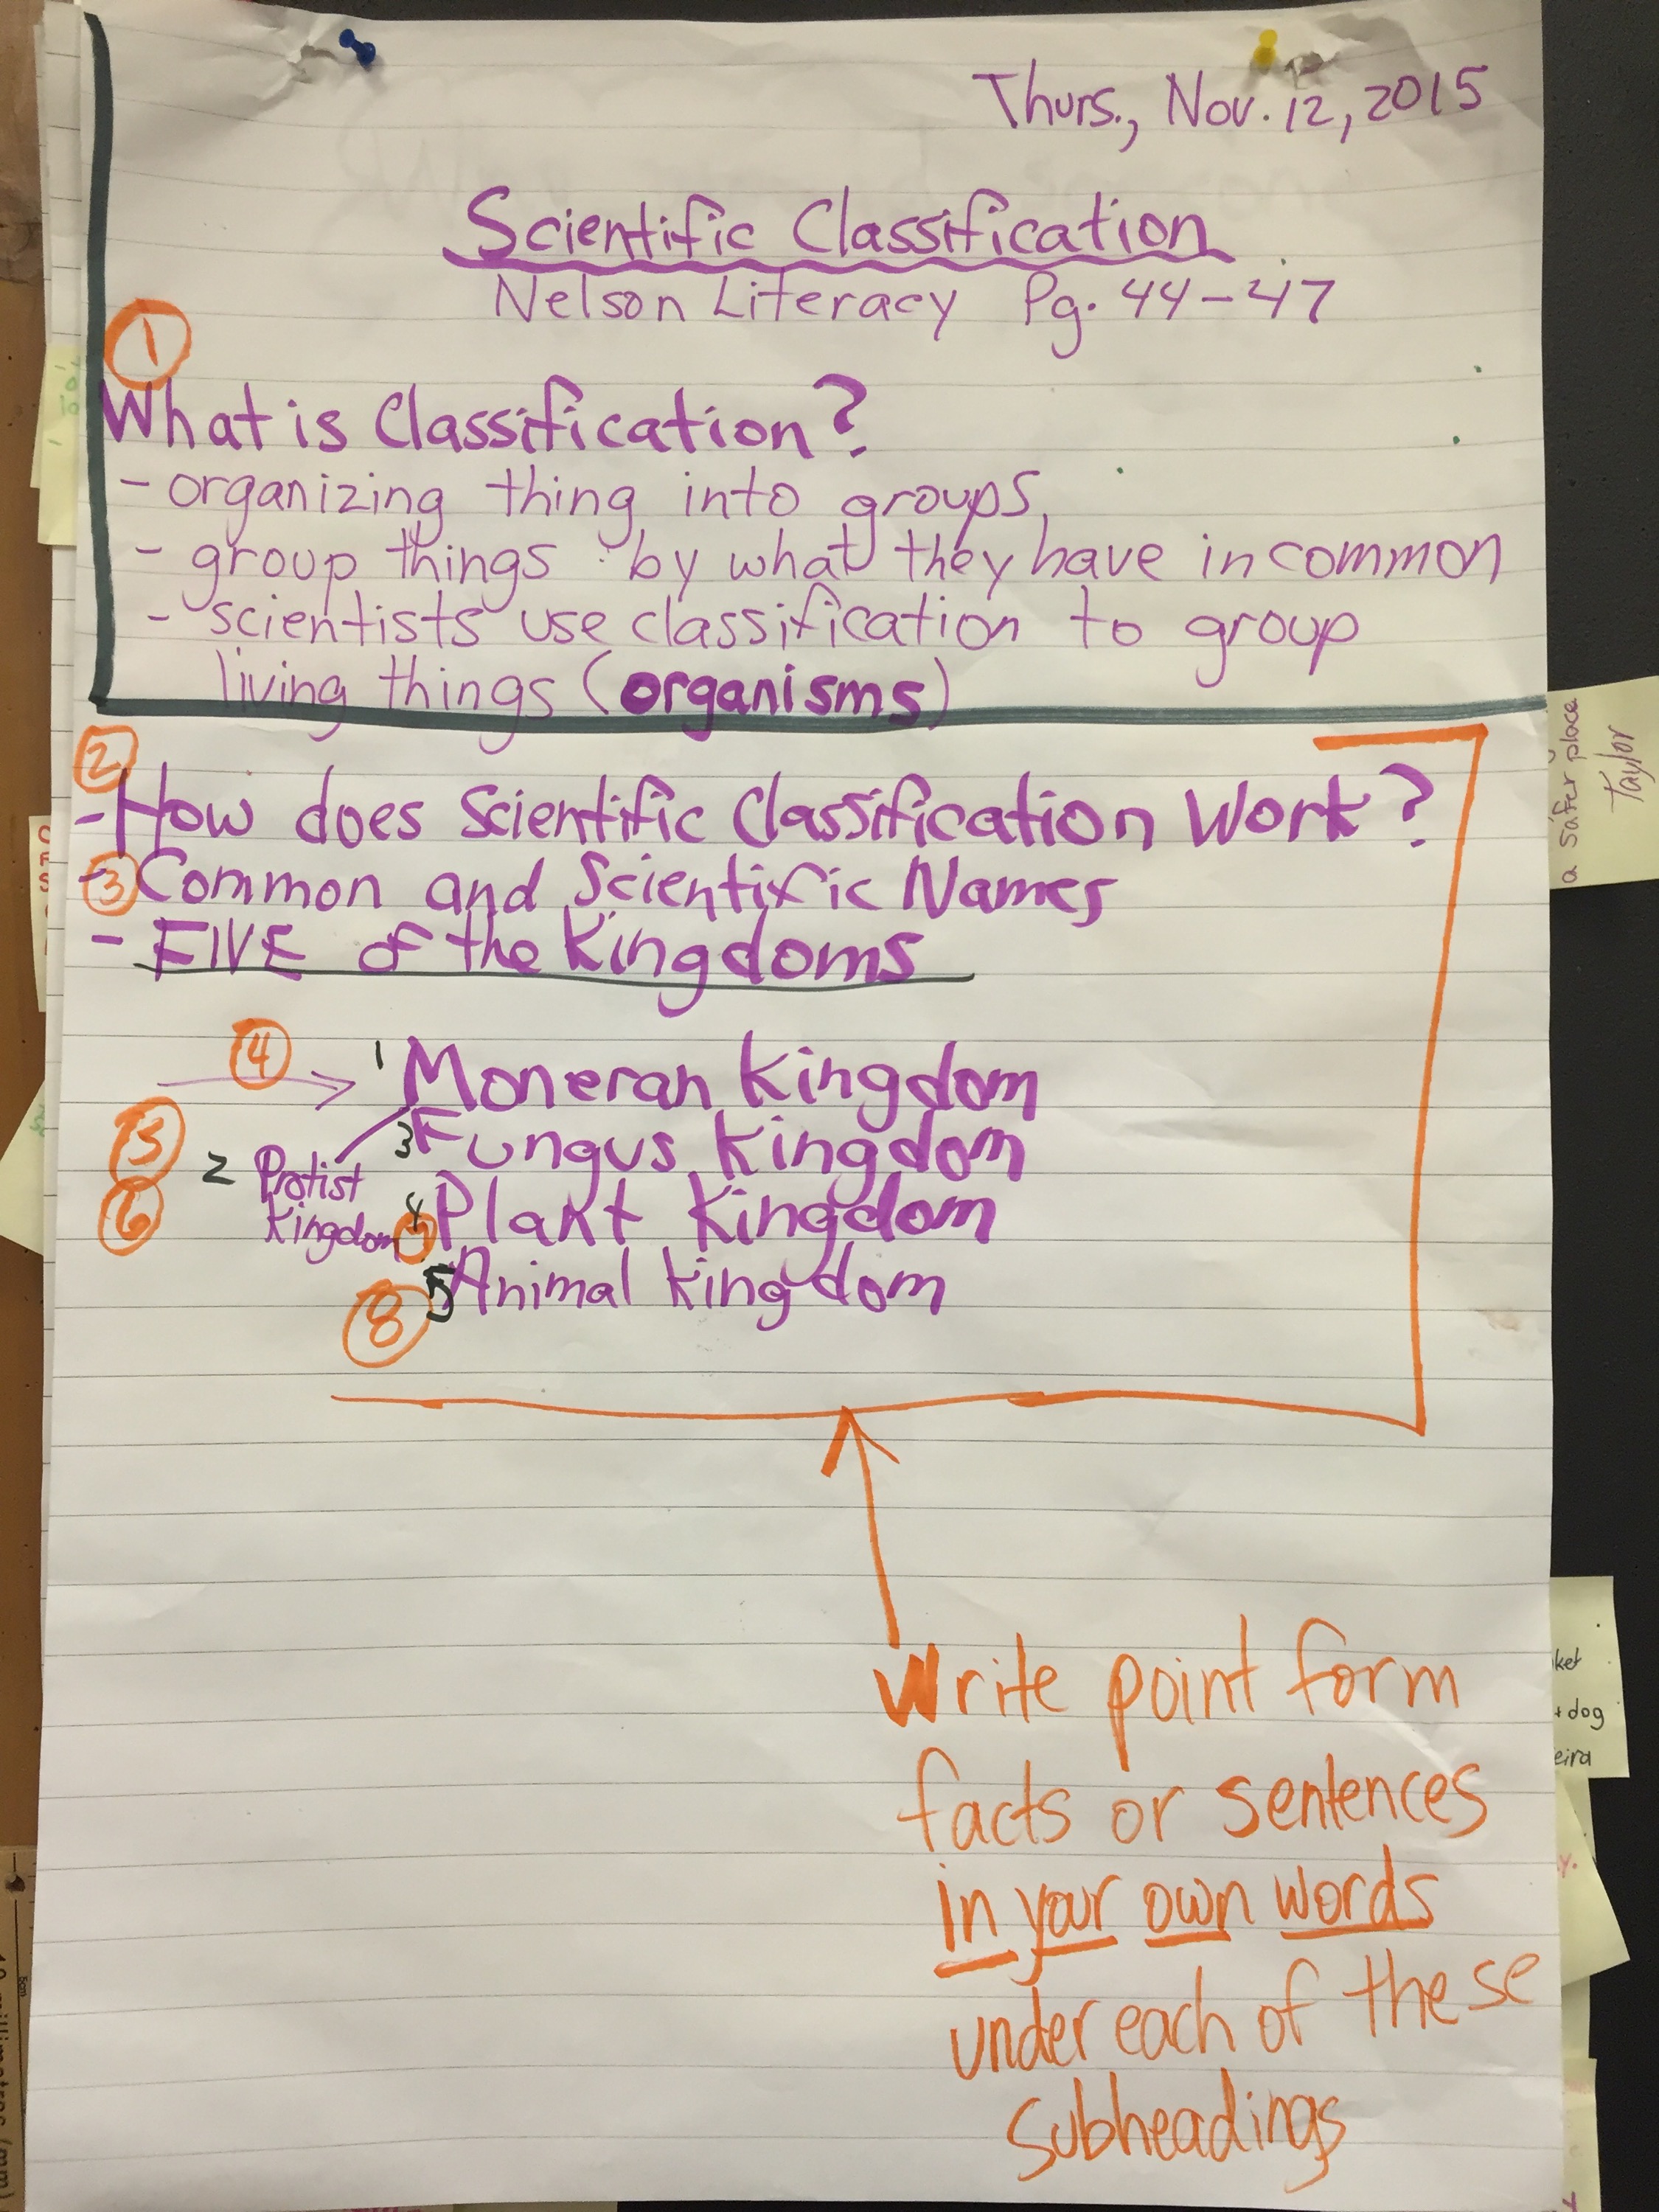 Thurs., Nov. 12, 2015
Scientific Classification
Nelson Literacy Pg. 44-47
1
What is Classification?
- organizing thing into groups,
- group things by what they have in common
- scientists use classification to group
living things (organisms)
2
- How does Scientific Classification Work?
- 3 Common and Scientific Names
- FIVE of the Kingdoms
4 1 Moneran Kingdom
5 3 Fungus Kingdom
2 Protist
Kingdom
6 4 7 Plant Kingdom
5 Animal Kingdom
8
Write point form
facts or sentences
in your own words
under each of these
subheadings
a safer place
Taylor
ket
+ dog
eira